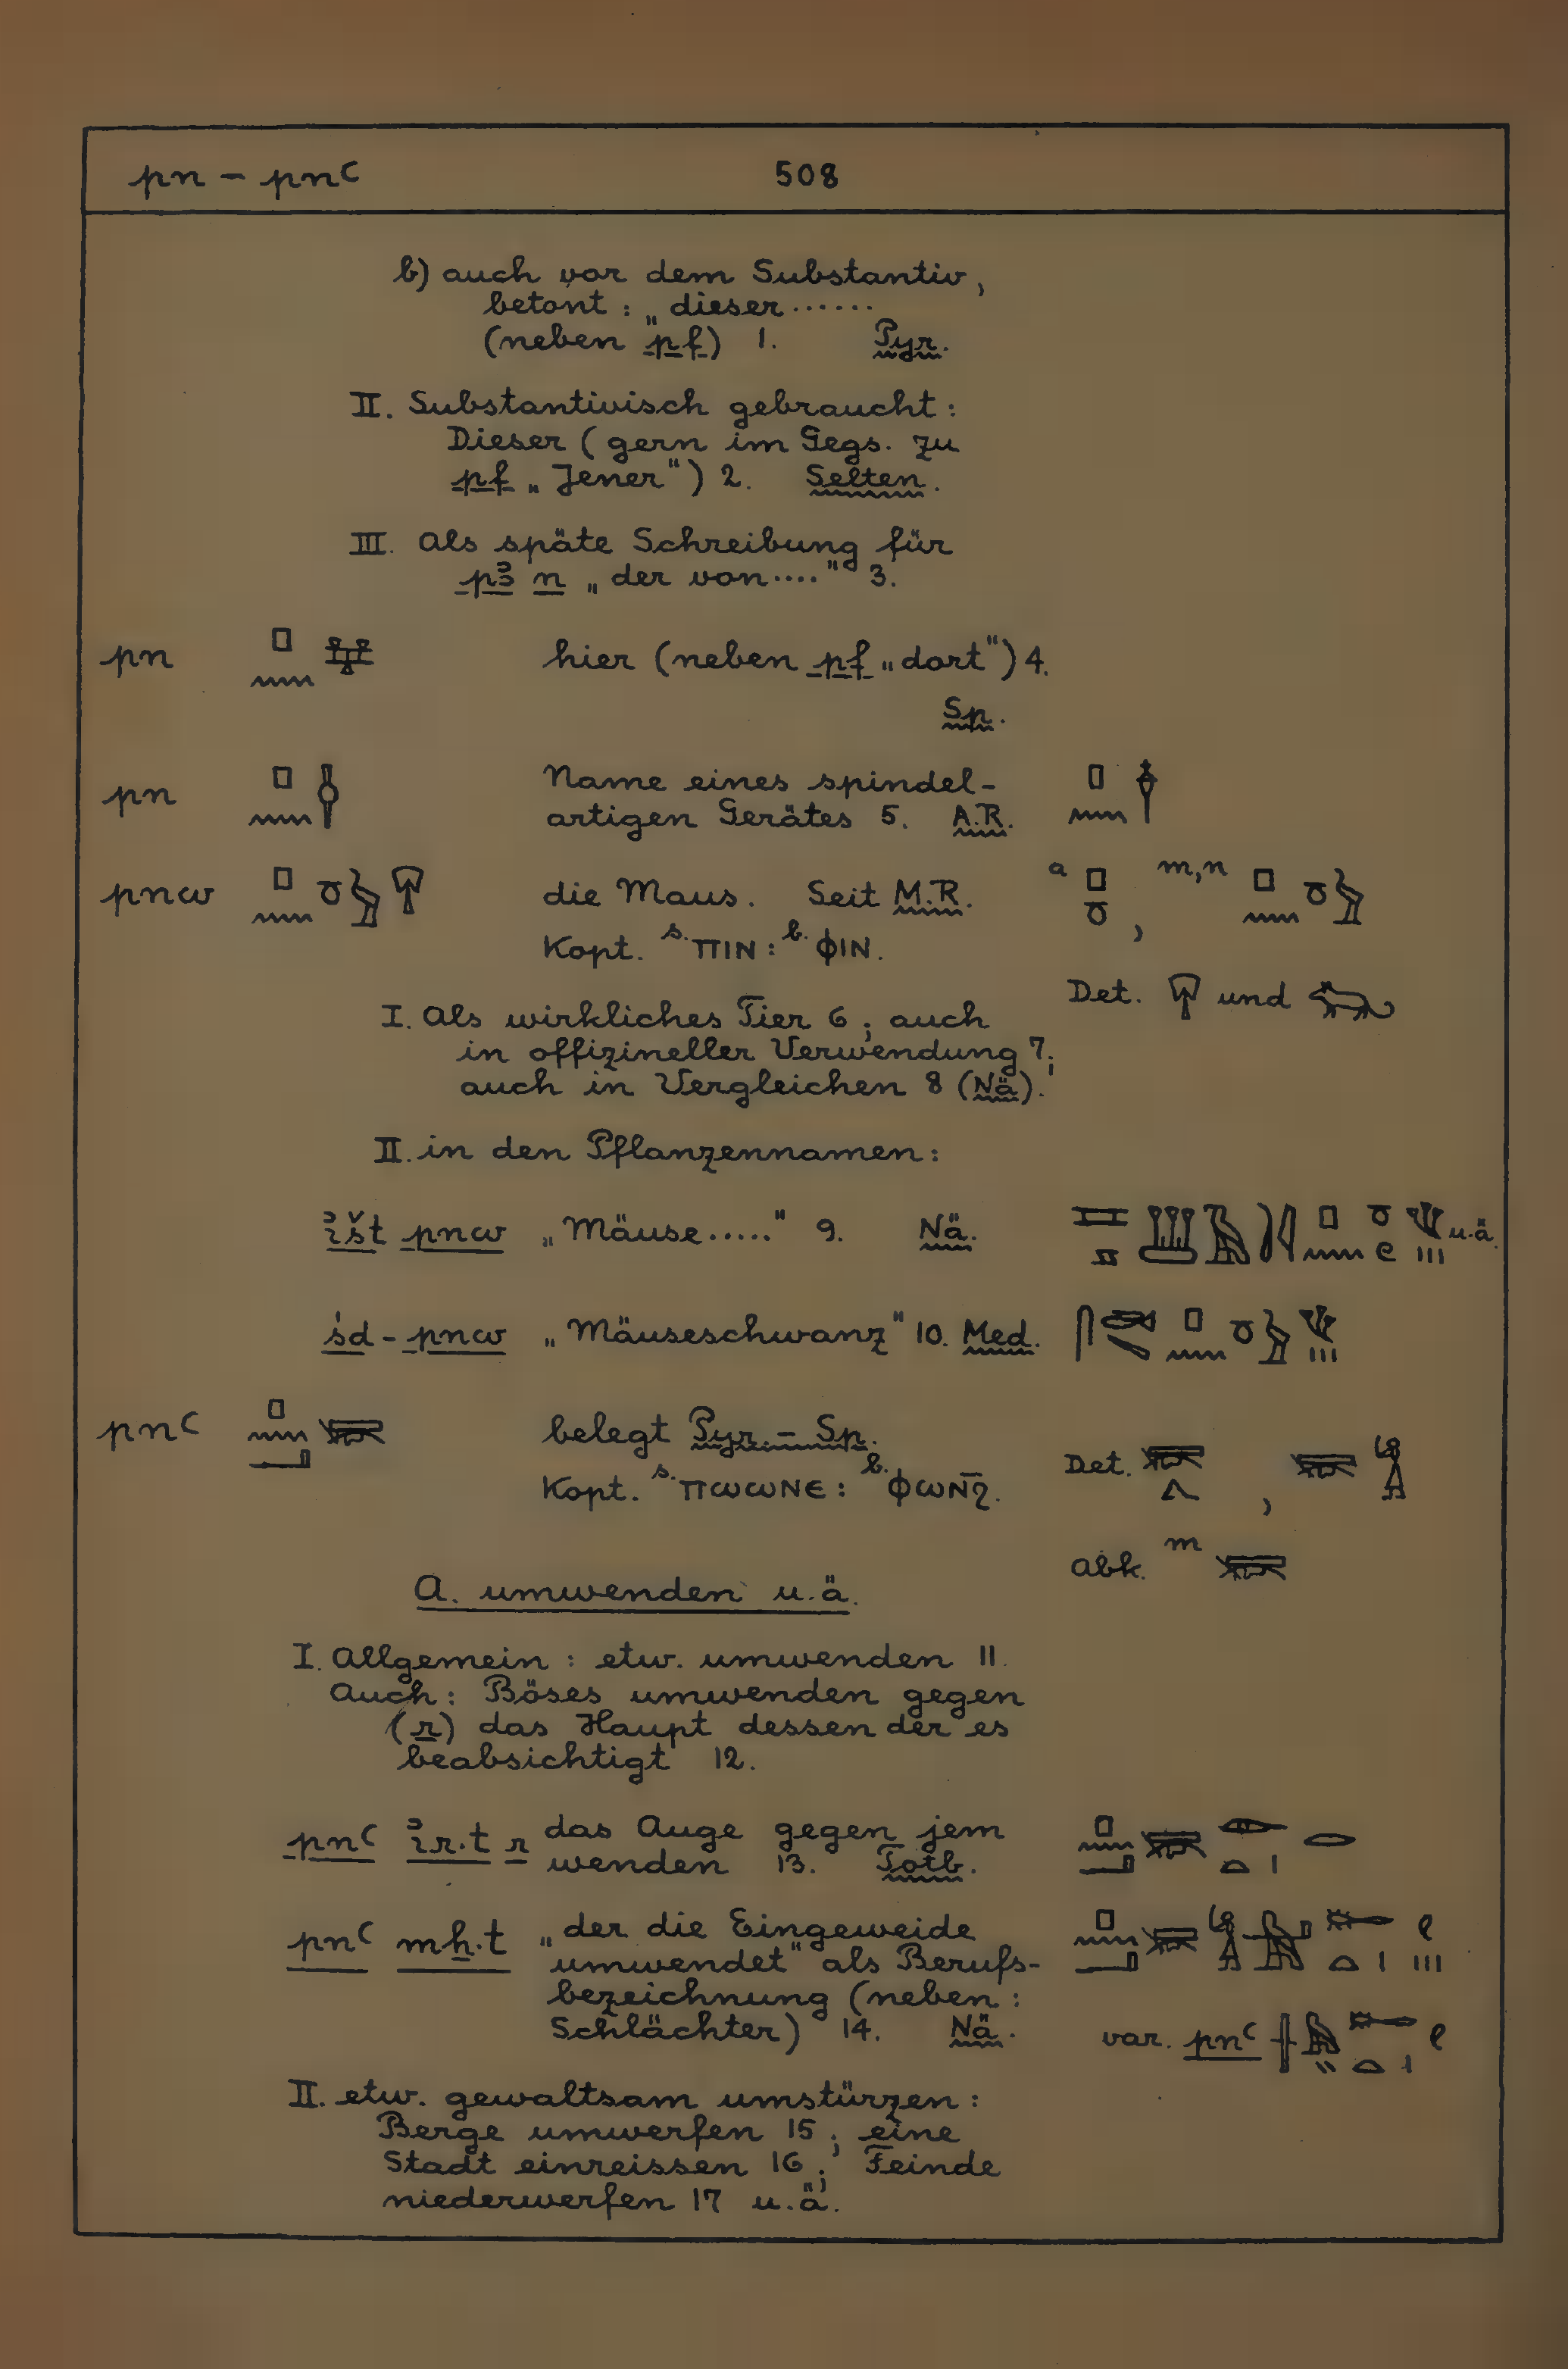 pn – pnꜥ 508
b) auch vor dem Substantiv,
betont: „dieser ......
(neben pf) 1. Pyr.
II. Substantivisch gebraucht:
Dieser (gern im Gegs. zu
pf „Jener") 2. Selten.
III. Als späte Schreibung für
pꜣ n „der von ...." 3.
pn hier (neben pf „dort") 4.
Sp.
pn Name eines spindel-
artigen Gerätes 5. A.R.
pnw die Maus. Seit M.R. a , m,n
Kopt. s. ⲠⲒⲚ: b. ⲪⲒⲚ.
Det. und
I. Als wirkliches Tier 6; auch
in offizineller Verwendung 7;
auch in Vergleichen 8 (Nä).
II. in den Pflanzennamen:
ꞽšt pnw „Mäuse....." 9. Nä. u.ä.
śd-pnw „Mäuseschwanz" 10. Med.
pnꜥ belegt Pyr.-Sp.
Kopt. s. ⲠⲰⲰⲚⲈ: b. ⲪⲰⲚ̅ϩ. Det. ,
Abk. m
A. umwenden u.ä.
I. Allgemein: etw. umwenden 11.
Auch: Böses umwenden gegen
(r) das Haupt dessen der es
beabsichtigt 12.
pnꜥ ꞽr.t r das Auge gegen jem
wenden 13. Totb.
pnꜥ mẖ.t „der die Eingeweide
umwendet" als Berufs-
bezeichnung (neben:
Schlächter) 14. Nä. var. pnꜥ
II. etw. gewaltsam umstürzen:
Berge umwerfen 15; eine
Stadt einreissen 16; Feinde
niederwerfen 17 u.ä.